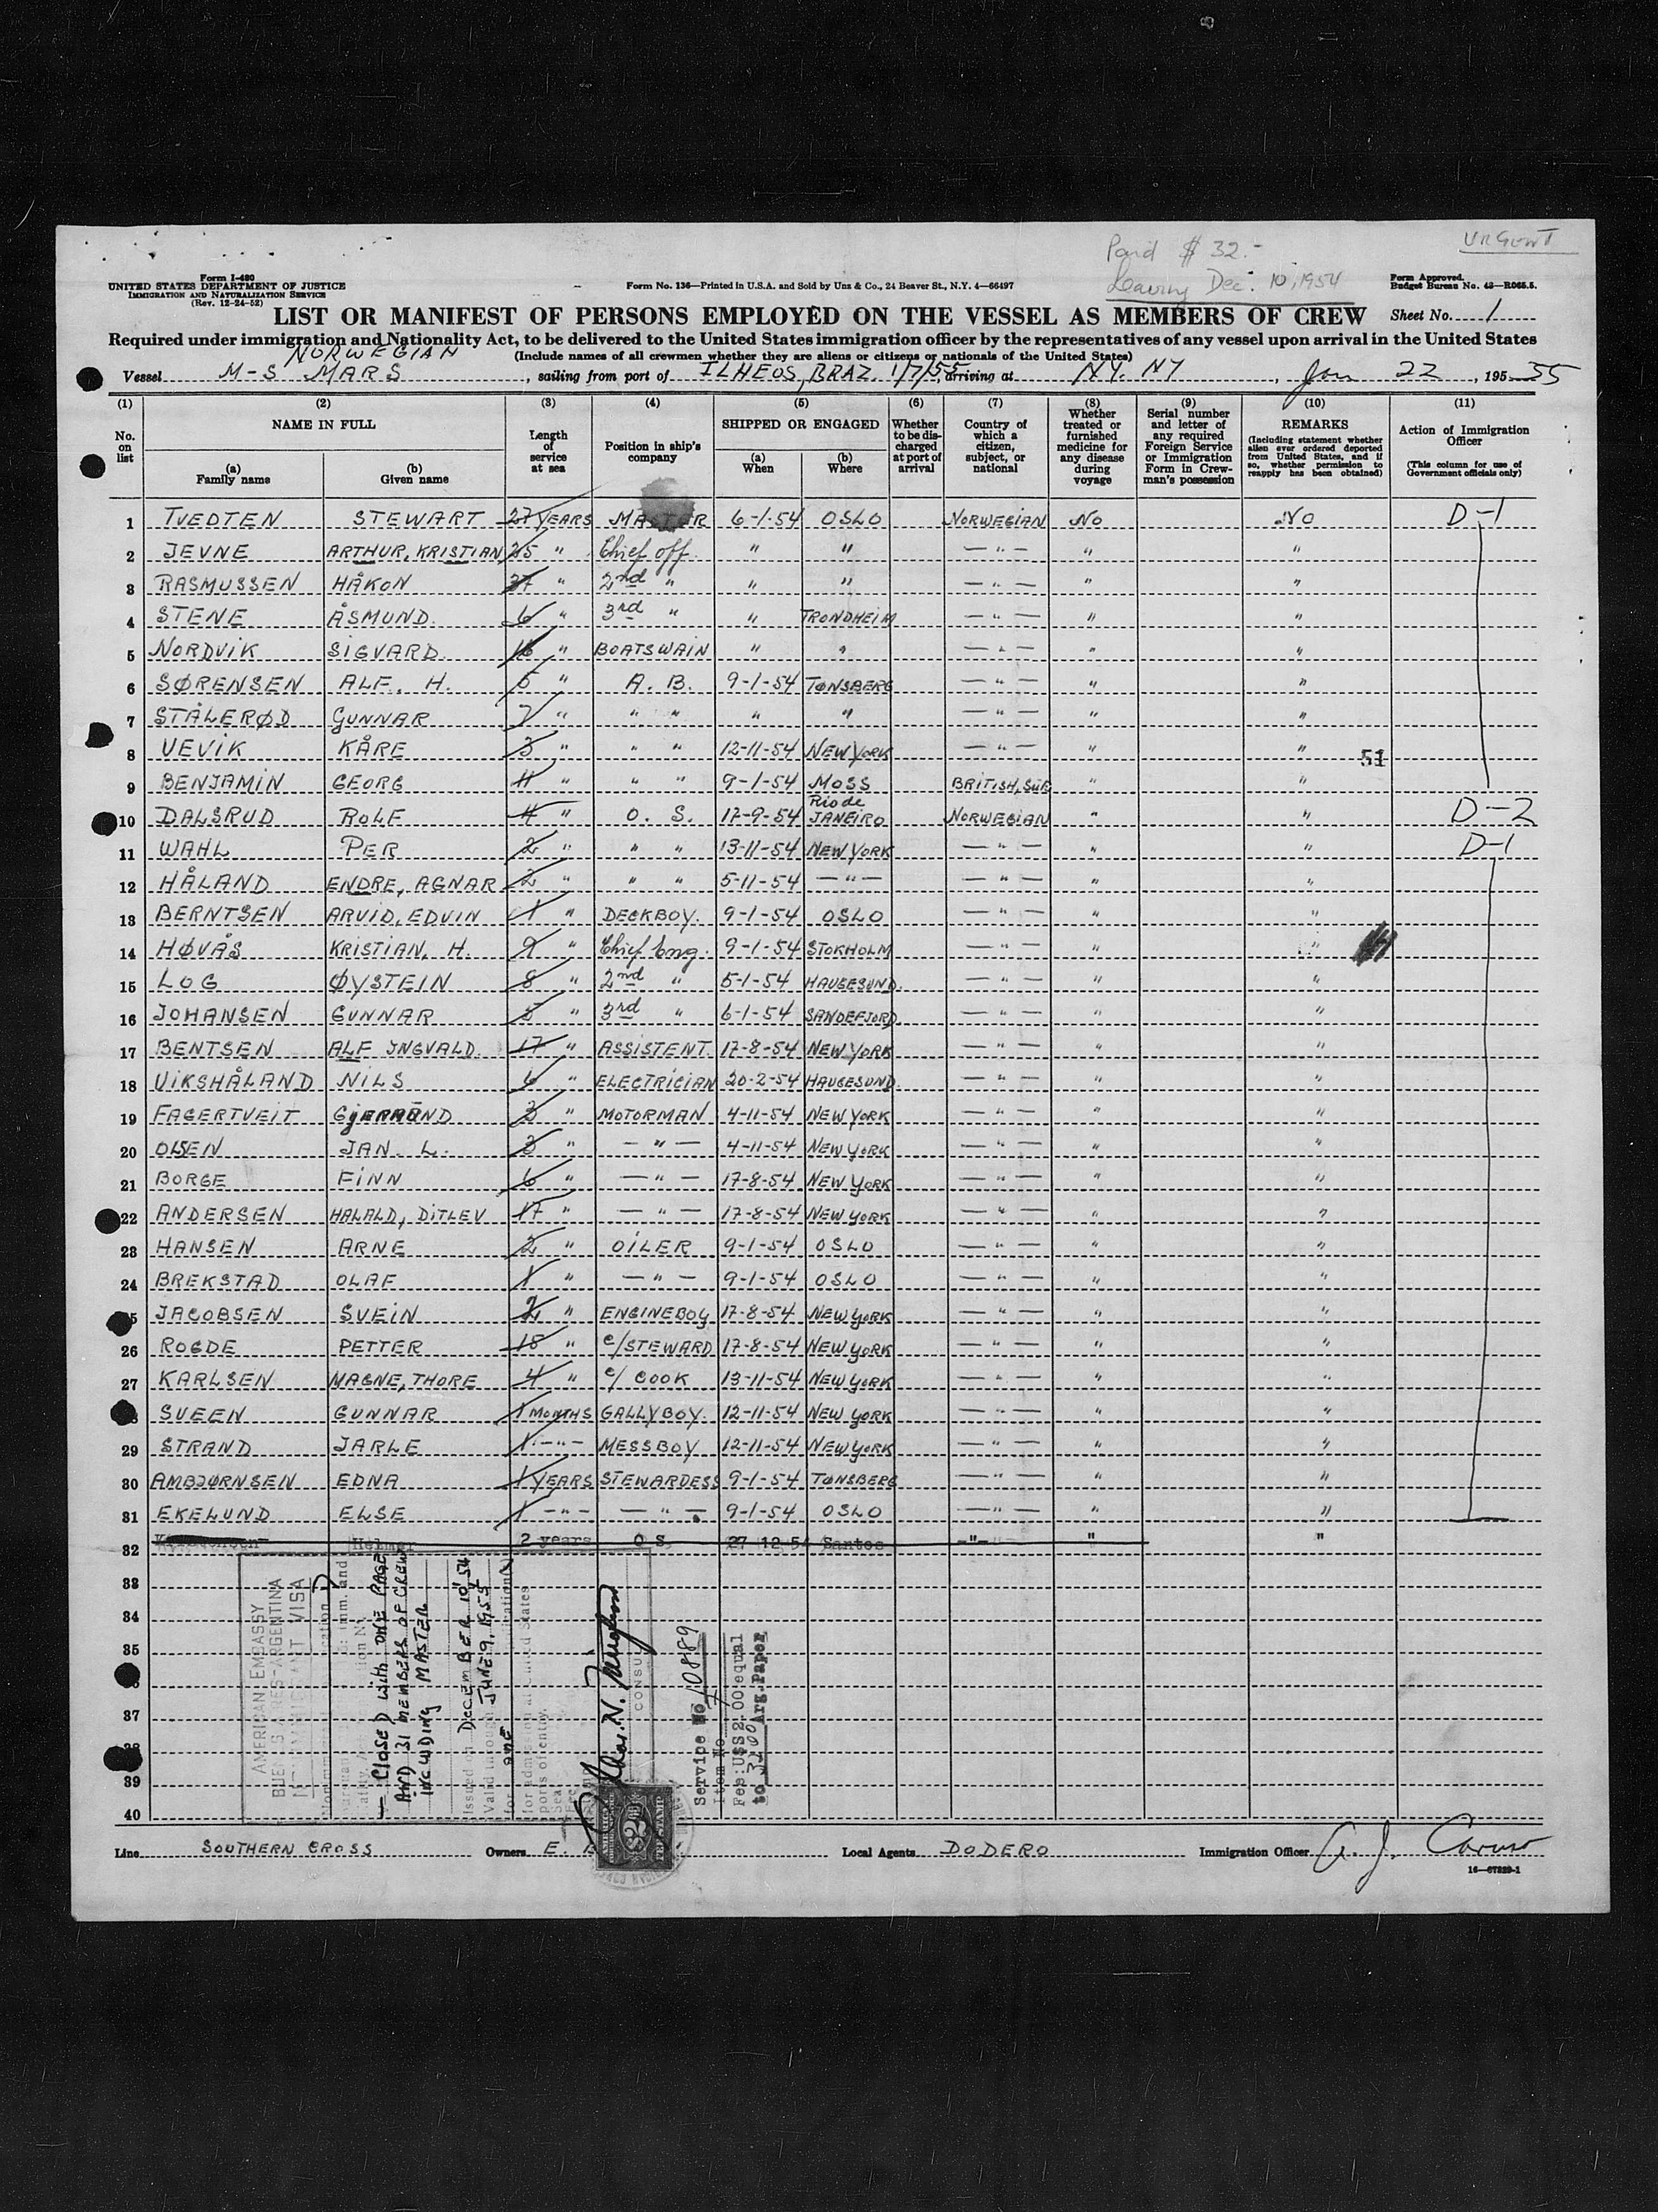 Paid $ 32.-
URGENT
Leaving Dec. 10, 1954
Form I-480
UNITED STATES DEPARTMENT OF JUSTICE
IMMIGRATION AND NATURALIZATION SERVICE
(Rev. 12-24-52)
Form No. 136—Printed in U.S.A. and Sold by Unz & Co., 24 Beaver St., N.Y. 4—66497
Form Approved.
Budget Bureau No. 43—R065.5.
LIST OR MANIFEST OF PERSONS EMPLOYED ON THE VESSEL AS MEMBERS OF CREW
Sheet No. 1
Required under immigration and Nationality Act, to be delivered to the United States immigration officer by the representatives of any vessel upon arrival in the United States
(Include names of all crewmen whether they are aliens or citizens or nationals of the United States)
NORWEGIAN
Vessel M-S MARS, sailing from port of ILHEOS, BRAZ. 1/7/55, arriving at NY. NY, Jan 22, 195 55
(1) (2) (3) (4) (5) (6) (7) (8) (9) (10) (11)
No. on list
NAME IN FULL
(a) Family name
(b) Given name
Length of service at sea
Position in ship's company
SHIPPED OR ENGAGED
(a) When
(b) Where
Whether to be discharged at port of arrival
Country of which a citizen, subject, or national
Whether treated or furnished medicine for any disease during voyage
Serial number and letter of any required Foreign Service or Immigration Form in Crewman's possession
REMARKS
(Including statement whether alien ever ordered deported from United States, and if so, whether permission to reapply has been obtained)
Action of Immigration Officer
(This column for use of Government officials only)
1 TVEDTEN STEWART 27 YEARS MASTER 6-1-54 OSLO NORWEGIAN NO NO D-1
2 JEVNE ARTHUR, KRISTIAN 25 " Chief off. " " — " — " "
3 RASMUSSEN HÅKON 37 " 2nd " " " — " — " "
4 STENE ÅSMUND. 6 " 3rd " " TRONDHEIM — " — " "
5 NORDVIK SIGVARD. 16 " BOATSWAIN " " — " — " "
6 SØRENSEN ALF. H. 5 " A. B. 9-1-54 TØNSBERG — " — " "
7 STÅLERØD GUNNAR 7 " " " " " — " — " "
8 VEVIK KÅRE 3 " " " 12-11-54 NEW YORK — " — " " 51
9 BENJAMIN GEORG 11 " " " 9-1-54 MOSS BRITISH, SUB " "
10 DALSRUD ROLF 4 " O. S. 17-9-54 Rio de JANEIRO NORWEGIAN " " D-2
11 WAHL PER 2 " " " 13-11-54 NEW YORK — " — " " D-1
12 HÅLAND ENDRE, AGNAR 2 " " " 5-11-54 — " — — " — " "
13 BERNTSEN ARVID, EDVIN 1 " DECKBOY. 9-1-54 OSLO — " — " "
14 HØVÅS KRISTIAN, H. 9 " Chief Eng. 9-1-54 STOKHOLM — " — " "
15 LOG ØYSTEIN 8 " 2nd " 5-1-54 HAUGESUND. — " — " "
16 JOHANSEN GUNNAR 5 " 3rd " 6-1-54 SANDEFJORD. — " — " "
17 BENTSEN ALF INGVALD. 17 " ASSISTENT. 17-8-54 NEW YORK — " — " "
18 VIKSHÅLAND NILS 6 " ELECTRICIAN 20-2-54 HAUGESUND. — " — " "
19 FAGERTVEIT GJERMUND 3 " MOTORMAN 4-11-54 NEW YORK — " — " "
20 OLSEN JAN L. 3 " — " — 4-11-54 NEW YORK — " — " "
21 BORGE FINN 6 " — " — 17-8-54 NEW YORK — " — " "
22 ANDERSEN HALALD, DITLEV 17 " — " — 17-8-54 NEW YORK — " — " "
23 HANSEN ARNE 2 " OILER 9-1-54 OSLO — " — " "
24 BREKSTAD OLAF 1 " — " — 9-1-54 OSLO — " — " "
5 JACOBSEN SVEIN 2 " ENGINEBOY 17-8-54 NEW YORK — " — " "
26 ROGDE PETTER 18 " c/STEWARD 17-8-54 NEW YORK — " — " "
27 KARLSEN MAGNE, THORE 4 " c/ COOK 13-11-54 NEW YORK — " — " "
SVEEN GUNNAR 1 MONTHS GALLYBOY. 12-11-54 NEW YORK — " — " "
29 STRAND JARLE 1 — " — MESSBOY 12-11-54 NEW YORK — " — " "
30 AMBJØRNSEN EDNA 1 YEARS STEWARDESS 9-1-54 TØNSBERG — " — " "
31 EKELUND ELSE 1 — " — — " — 9-1-54 OSLO — " — " "
32 Helmer 2 years O S. 27 12-54 Santos -"- " "
33
34
35
37
39
40
AMERICAN EMBASSY
BUENOS AIRES-ARGENTINA
VISA
CLOSED with ONE PAGE
AND 31 MEMBERS OF CREW
INCLUDING MASTER
Issued on DECEMBER 10 54
Valid through JUNE 9, 1955
for one
for admission at United States
ports of entry.
Seal
Fee
CONSUL
Service No 10889
Item No. 7
Fee: U$S 2.00 equal
to Arg. Paper
Line SOUTHERN CROSS
Owners E.
Local Agents DODERO
Immigration Officer A. J. Caruso
16—67329-1